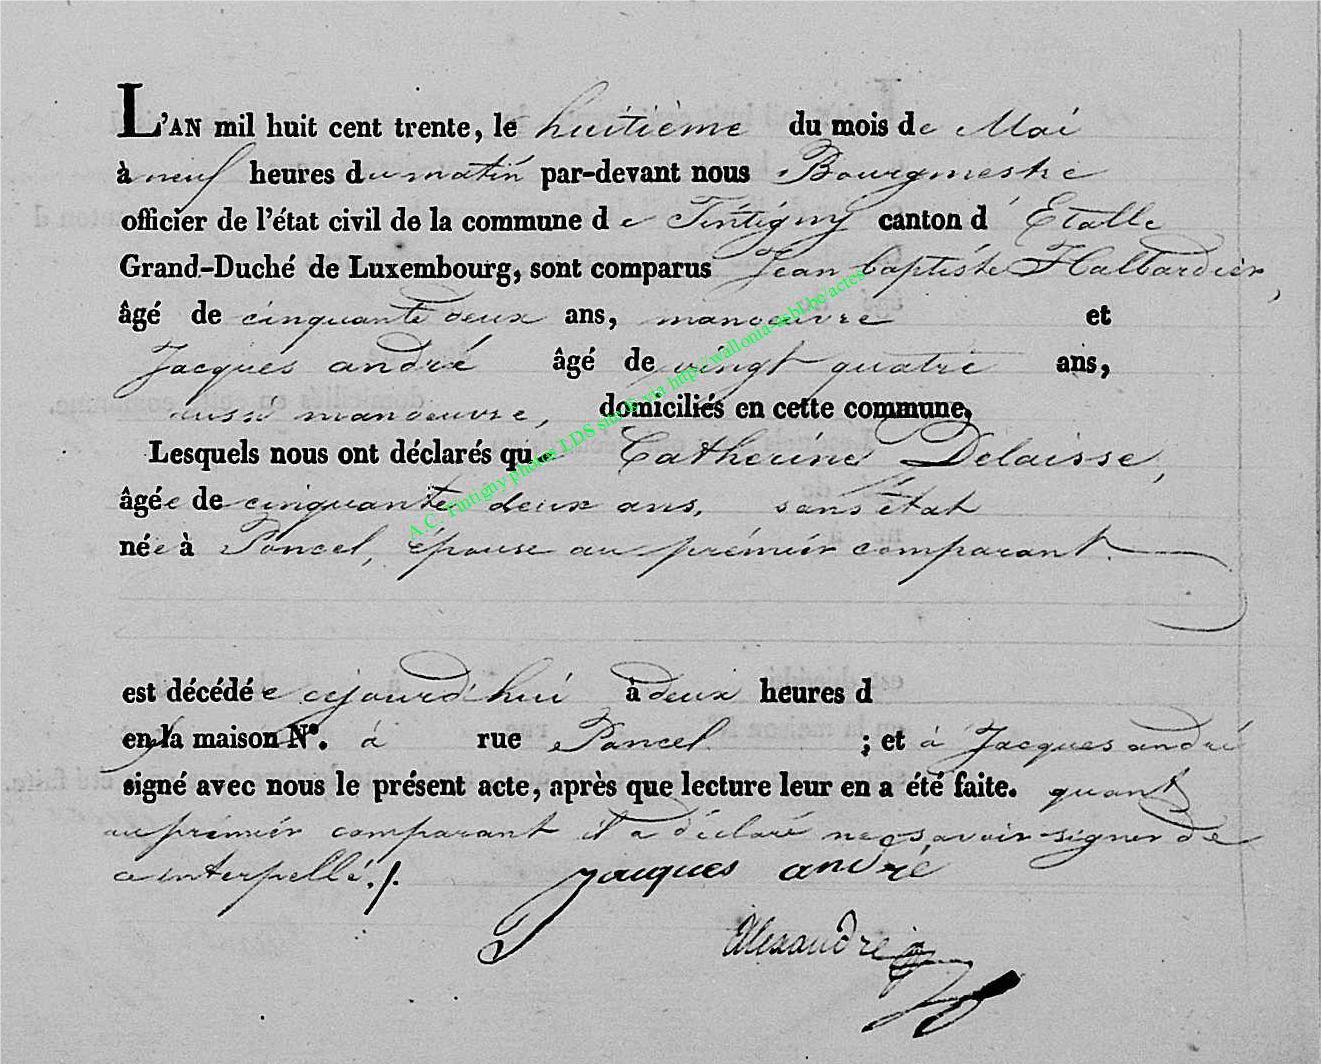 L'AN mil huit cent trente, le huitième du mois de Mai
à neuf heures du matin par-devant nous Bourgmestre
officier de l'état civil de la commune de Tintigny canton d'Etalle
Grand-Duché de Luxembourg, sont comparus Jean baptiste Halbardier,
âgé de cinquante deux ans, manoeuvre et
Jacques andré âgé de vingt quatre ans,
aussi manoeuvre, domiciliés en cette commune,
Lesquels nous ont déclarés que Catherine Delaisse,
âgée de cinquante deux ans, sans état
née à Poncel, épouse au prémiér comparant
est décédée cejourd'hui à deux heures d
en la maison N°. à rue Poncel ; et à Jacques andré
signé avec nous le présent acte, après que lecture leur en a été faite. quant
au prémiér comparant il a déclaré ne savoir signer de
ce interpellé./.
jacques andré
Alexandre
A.C. Tintigny photos LDS via http://walloma-asbl.be/actes